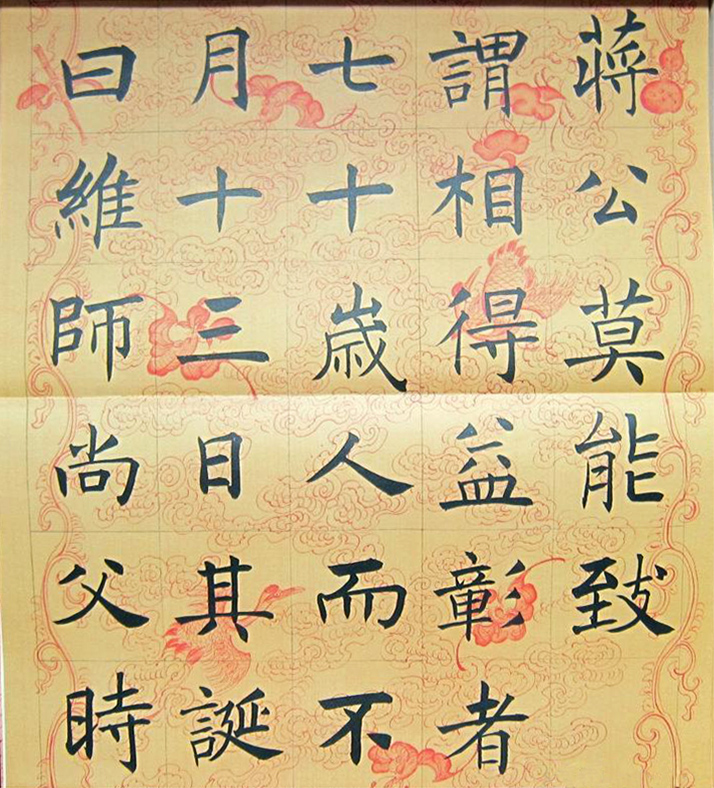 蔣公莫能致
謂相得益彰者
七十歳人而不
月十三日其誕
曰維師尚父時